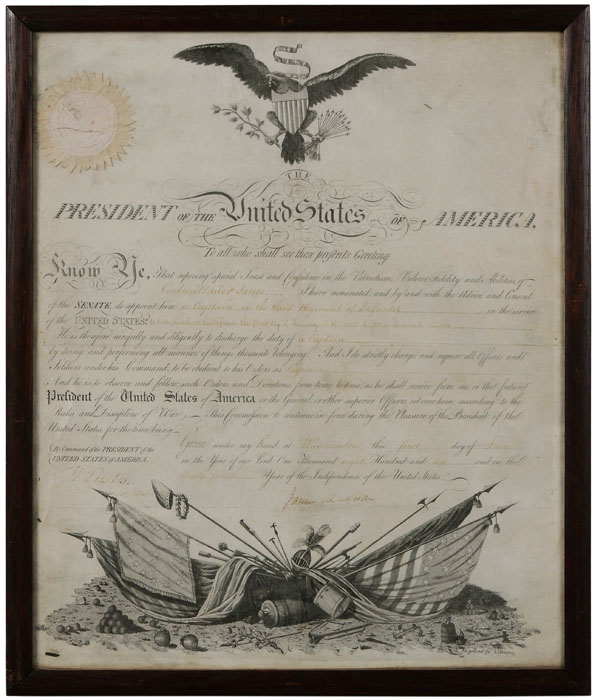 THE
PRESIDENT OF THE United States OF AMERICA,
To all who shall see these presents Greeting:
Know Ye, That reposing special Trust and Confidence in the Patriotism, Valour, Fidelity and Abilities of
I have nominated, and by and with the Advice and Consent
of the SENATE, do appoint him a Captain in the third Regiment of Infantry in the service
of the UNITED STATES:
He is therefore carefully and diligently to discharge the duty of a Captain
by doing and performing all manner of things thereunto belonging. And I do strictly charge, and require all Officers and
Soldiers under his Command, to be obedient to his Orders as Captain
And he is to observe and follow such Orders and Directions, from time to time, as he shall receive from me, or the future
President of the United States of America or the General, or other superior Officers set over him, according to the
Rules and Discipline of War. This Commission to continue in force during the Pleasure of the President of the
United States, for the time being.
Given under my hand at Washington this day of
By Command of the PRESIDENT of the
in the Year of our Lord One Thousand eight Hundred and and in the
UNITED STATES of AMERICA.
Year of the Independence of the United States.
James Madison